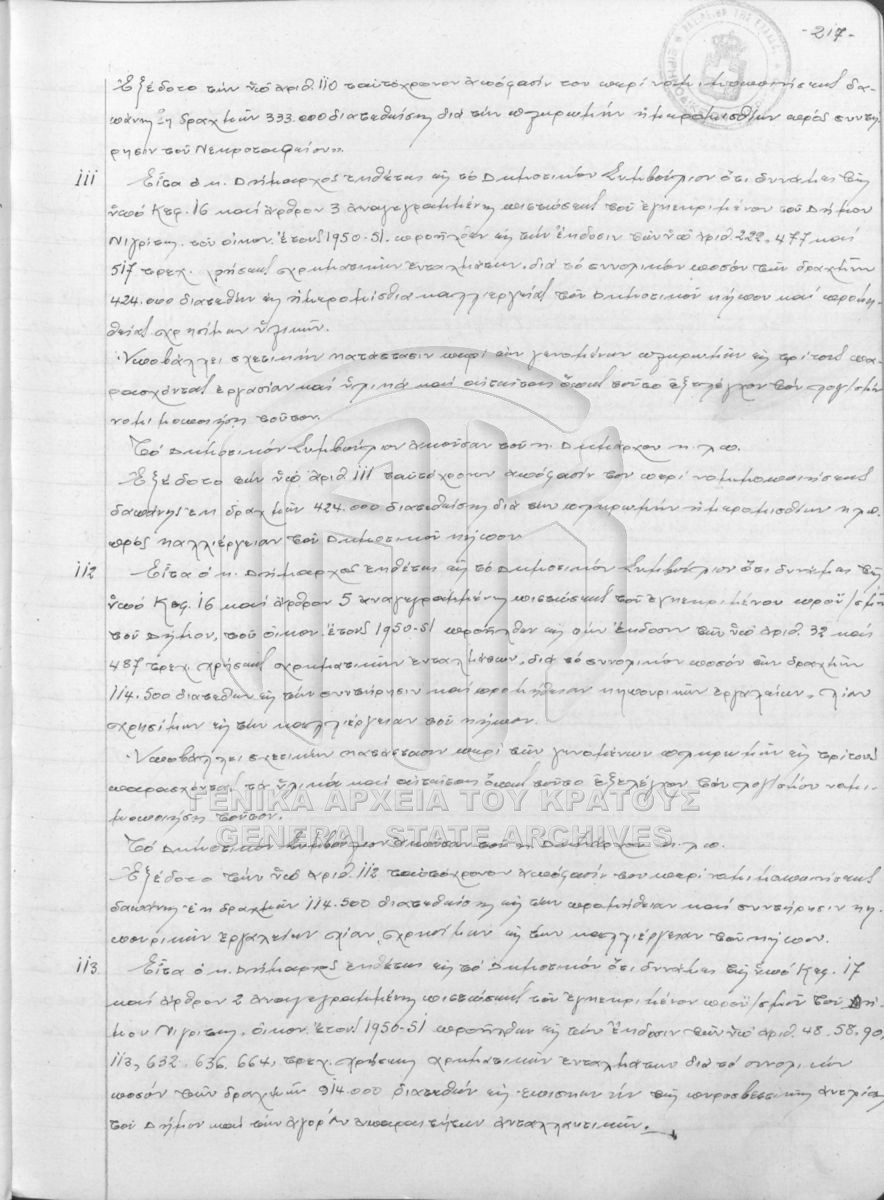 -217-
Ἐξέδοτο τὴν ὑπ' ἀριθ. 110 ταὐτόχρονον ἀπόφασίν του περὶ νομιμοποιήσεως δα-
πάνης ἐκ δραχμῶν 333.000 διατεθείσης διὰ τὴν πληρωμὴν ἡμερομισθίων πρὸς συντή-
ρησιν τοῦ Νεκροταφείου.
111 Εἶτα ὁ κ. Δήμαρχος ἐκθέτει εἰς τὸ Δημοτικὸν Συμβούλιον ὅτι δυνάμει τῆς
ὑπὸ Κεφ. 16 καὶ ἄρθρον 3 ἀναγεγραμμένης πιστώσεως τοῦ ἐγκεκριμένου τοῦ Δήμου
Νιγρίτης τοῦ οἰκον. ἔτους 1950-51 προῆλθεν εἰς τὴν ἔκδοσιν τῶν ὑπ' ἀριθ. 222, 477 καὶ
517 τρεχ. χρήσεως χρηματικῶν ἐνταλμάτων, διὰ τὸ συνολικὸν ποσὸν τῶν δραχμῶν
424.000 διατεθὲν εἰς ἡμερομίσθια καλλιεργείας τοῦ Δημοτικοῦ κήπου καὶ προμη-
θείας χρησίμων ὑλικῶν.
Ὑποβάλλει σχετικὴν κατάστασιν περὶ τῶν γενομένων πληρωμῶν εἰς τρίτους πα-
ρασχόντας ἐργασίαν καὶ ὑλικὰ καὶ αἰτεῖται ὅπως τοῦτο ἐξελέγχον τὸν λογ/σμὸν
νομιμοποιήσῃ τοῦτον.
Τὸ Δημοτικὸν Συμβούλιον ἀκοῦσαν τοῦ κ. Δημάρχου κ.λ.π.
Ἐξέδοτο τὴν ὑπ' ἀριθ. 111 ταὐτόχρονον ἀπόφασίν του περὶ νομιμοποιήσεως
δαπάνης ἐκ δραχμῶν 424.000 διατεθείσης διὰ τὴν πληρωμὴν ἡμερομισθίων κ.λ.π.
πρὸς καλλιέργειαν τοῦ Δημοτικοῦ κήπου
112 Εἶτα ὁ κ. Δήμαρχος ἐκθέτει εἰς τὸ Δημοτικὸν Συμβούλιον ὅτι δυνάμει τῆς
ὑπὸ Κεφ. 16 καὶ ἄρθρον 5 ἀναγεγραμμένης πιστώσεως τοῦ ἐγκεκριμένου προϋ/σμοῦ
τοῦ Δήμου, τοῦ οἰκον. ἔτους 1950-51 προῆλθεν εἰς τὴν ἔκδοσιν τῶν ὑπ' ἀριθ. 32 καὶ
487 τρεχ. χρήσεως χρηματικῶν ἐνταλμάτων, διὰ τὸ συνολικὸν ποσὸν τῶν δραχμῶν
114.500 διατεθὲν εἰς τὴν συντήρησιν καὶ προμήθειαν κηπουρικῶν ἐργαλείων, λίαν
χρησίμων εἰς τὴν καλλιέργειαν τοῦ κήπου.
Ὑποβάλλει σχετικὴν κατάστασιν περὶ τῶν γενομένων πληρωμῶν εἰς τρίτους
παρασχόντας τὰ ὑλικὰ καὶ αἰτεῖται ὅπως τοῦτο ἐξελέγχον τὸν λογ/σμὸν νομι-
μοποιήσῃ τοῦτον.
Τὸ Δημοτικὸν Συμβούλιον ἀκοῦσαν τοῦ κ. Δημάρχου κ.λ.π.
Ἐξέδοτο τὴν ὑπ' ἀριθ. 112 ταὐτόχρονον ἀπόφασίν του περὶ νομιμοποιήσεως
δαπάνης ἐκ δραχμῶν 114.500 διατεθείσης εἰς τὴν προμήθειαν καὶ συντήρησιν κη-
πουρικῶν ἐργαλείων λίαν χρησίμων εἰς τὴν καλλιέργειαν τοῦ κήπου.
113 Εἶτα ὁ κ. Δήμαρχος ἐκθέτει εἰς τὸ Δημοτικὸν ὅτι δυνάμει τῆς ὑπὸ Κεφ. 17
καὶ ἄρθρον 2 ἀναγεγραμμένης πιστώσεως τοῦ ἐγκεκριμένου προϋ/σμοῦ τοῦ Δή-
μου Νιγρίτης, οἰκον. ἔτους 1950-51 προῆλθεν εἰς τὴν ἔκδοσιν τῶν ὑπ' ἀριθ. 48, 58, 90,
113, 632, 636, 664, τρεχ. χρήσεως χρηματικῶν ἐνταλμάτων διὰ τὸ συνολικὸν
ποσὸν τῶν δραχμῶν 914.000 διατεθὲν εἰς ἐπισκευὴν τῆς πυροσβεστικῆς ἀντλίας
τοῦ Δήμου καὶ τὴν ἀγορὰν ἀπαραιτήτων ἀνταλλακτικῶν.
ΓΕΝΙΚΑ ΑΡΧΕΙΑ ΤΟΥ ΚΡΑΤΟΥΣ
GENERAL STATE ARCHIVES